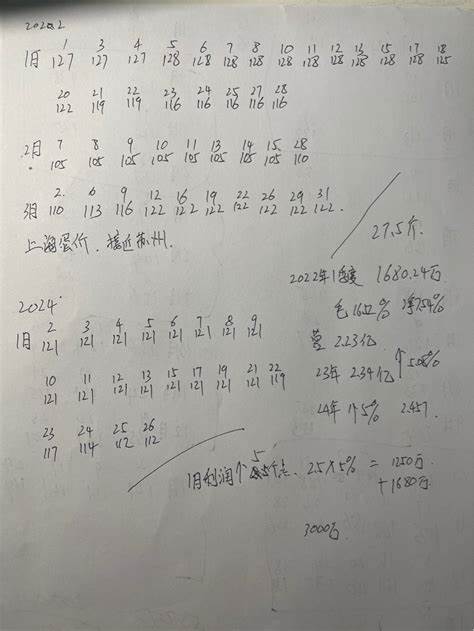 1月 1 3 4 5 6 7 8 10 11 12 13 15 17 18
127 127 127 128 128 128 128 128 128 128 128 128 128 125
20 21 22 23 24 25 27 28
122 119 119 116 116 116 116 116
2月 7 8 9 10 11 13 14 15 28
105 105 105 105 105 105 105 105 110
3月 2 6 9 12 16 19 22 26 29 31
110 113 116 122 122 122 122 122 122 122
上海蛋价、接近苏州.
27.5斤.
2022年1季度 1680.24万
毛16.12% 净7.54%
营 2.23亿
23年 2.34亿 ↑5.08%
24年 2.457
2024
1月 2 3 4 5 6 7 8 9
121 121 121 121 121 121 121 121
10 11 12 13 15 17 19 21 22
121 121 121 121 121 121 121 121 119
23 24 25 26
117 114 112 112
1月利润个5 点、2.5×5% = 1250万
+1680万
3000万